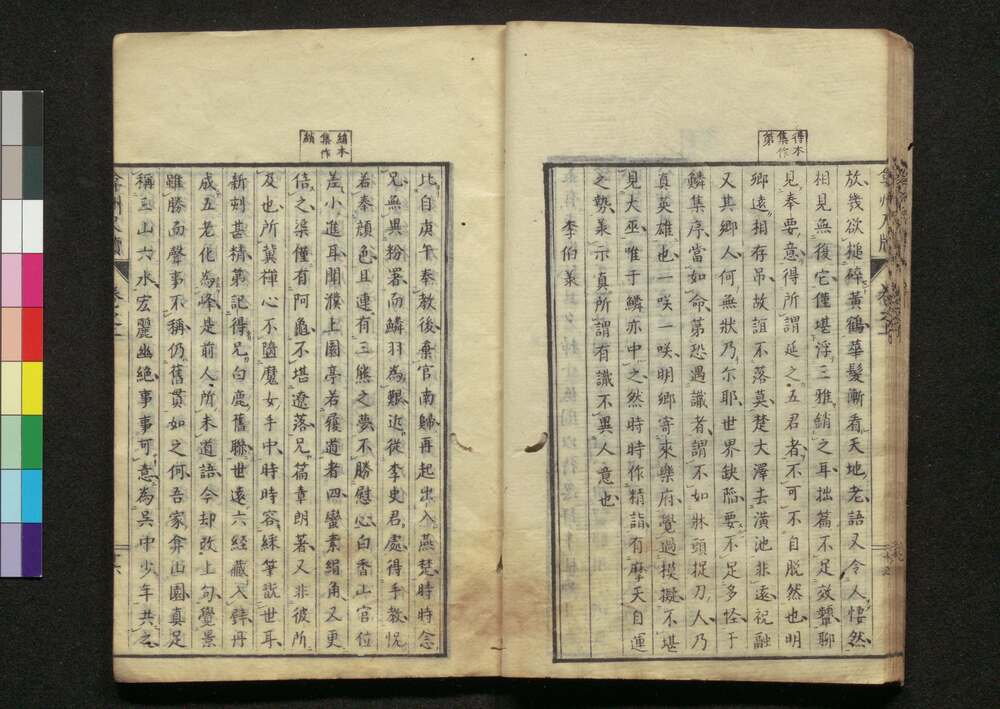 得本
集作
第
放幾欲槌碎黃鶴華髮漸看天地老語又令人悽然
相見無復它僅堪浮三雅餉之耳拙篇不足效聱聊
見奉要意得所謂延之五君者不可不自脫然也明
卿遠相存弔故誼不落莫楚大澤去潢池非遠祝融
又其鄉人何無狀乃尓耶世界缺陷要不足多怪于
鱗集序當如命第恐遇識者謂不如牀頭捉刀人乃
真英雄也一咲一咲明卿寄來樂府覺過摸擬不堪
見大巫唯于鱗亦中之然時時作精詣有摩天自運
之勢兼示真所謂有識不異人意也
李伯兼
絹本
集作
綃
比自庚午奉教後棄官南歸再起出入燕楚時時念
兄無異粉署而鱗羽為艱近從李史君處得手教怳
若奉顏色且連有三熊之夢不勝慰心白香山官位
差小進耳聞濮上園亭若履道者四蠻素絹角又更
倍之渠僅有阿龜不堪遼落兄篇章朗著又非彼所
及也所冀禪心不墮魔女手中時時容綵筆説世耳
新刻甚精第記得兄白鹿舊聯世遠六經藏入壁丹
成五老化為峰是前人所未道語今却改上句覺景
雖勝而聲事不稱仍舊貫如之何吾家弇山園真足
稱三山六水宏麗幽絶事事可意為吳中少年共之